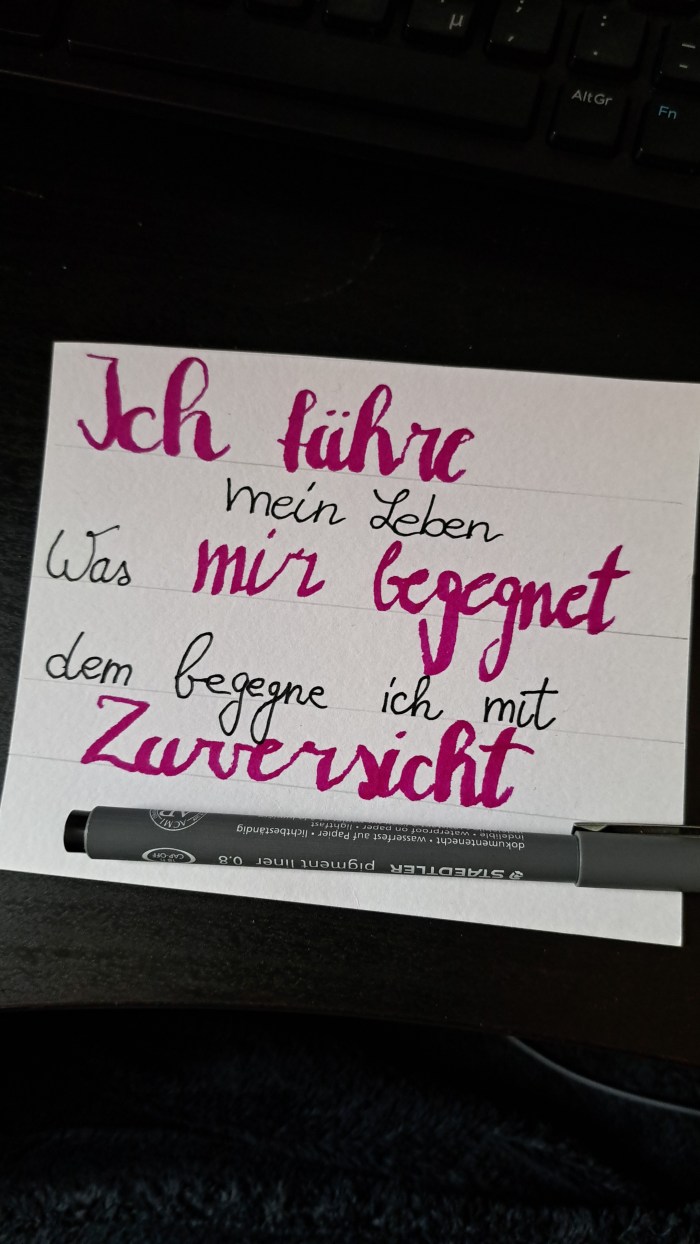 µ
;
,
:
.
_
-
AltGr
Fn
Ich führe
mein Leben
Was mir begegnet
dem begegne ich mit
Zuversicht
STAEDTLER pigment liner 0.8
dokumentenecht • wasserfest auf Papier • lichtbeständig
indelible • waterproof on paper • lightfast
CAP-OFF
ACMI
AP